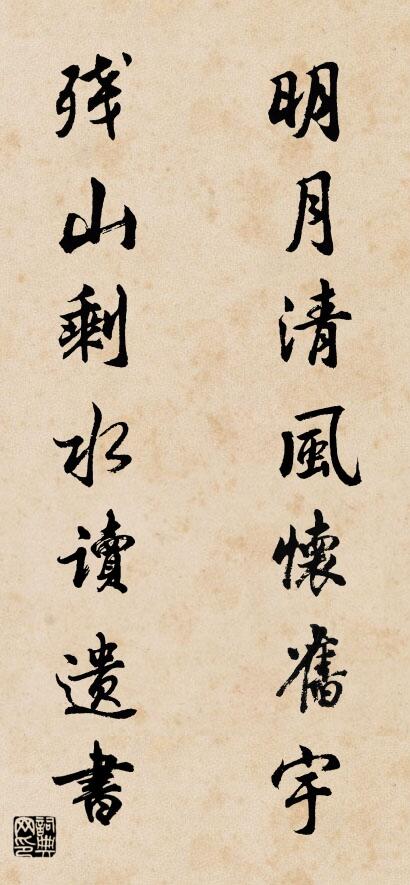 明月清風懷舊宇
残山剩水讀遺書
詞典網印